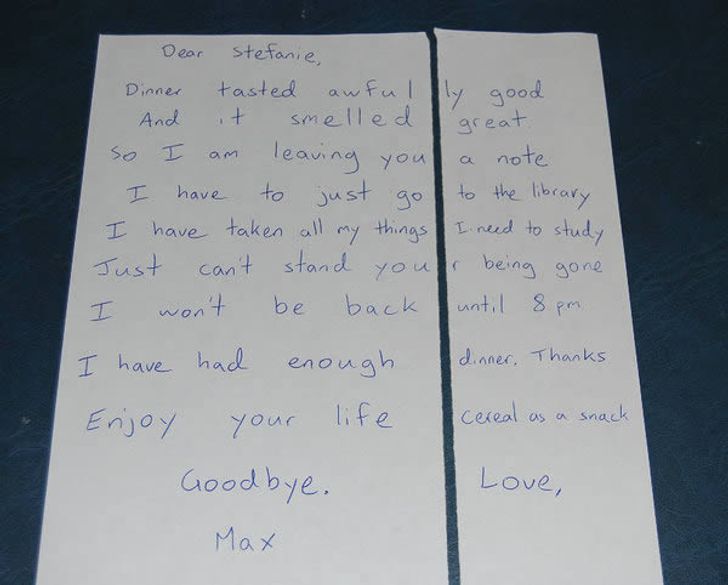 Dear Stefanie,
Dinner tasted awful ly good
And it smelled great
So I am leaving you a note
I have to just go to the library
I have taken all my things I need to study
Just can't stand you r being gone
I won't be back until 8 pm
I have had enough dinner. Thanks
Enjoy your life cereal as a snack
Goodbye. Love,
Max